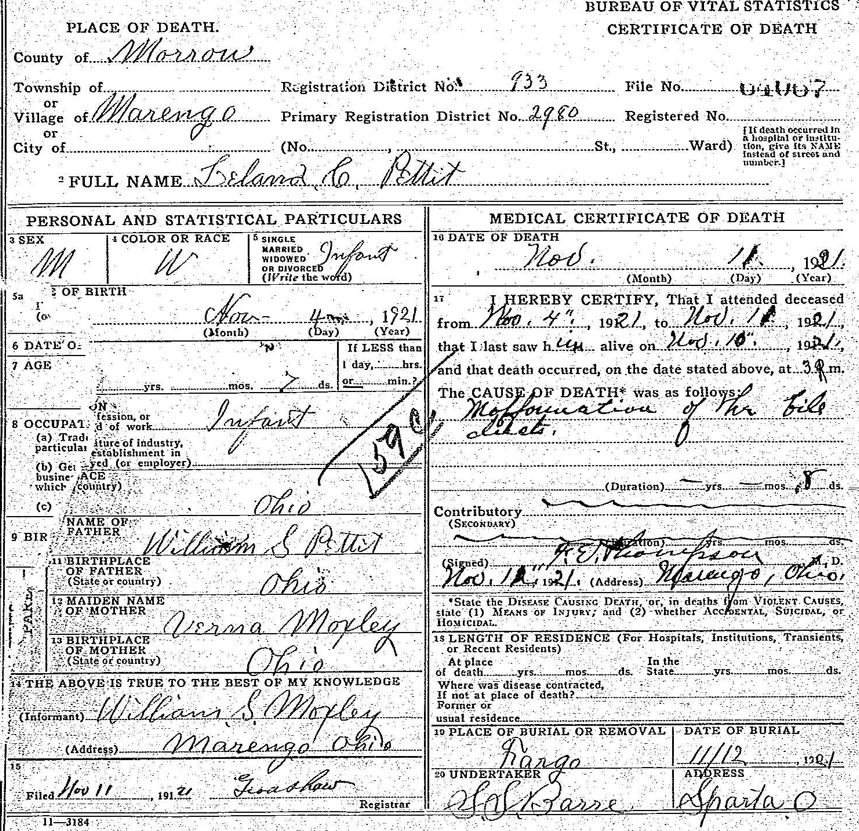 BUREAU OF VITAL STATISTICS
PLACE OF DEATH.
CERTIFICATE OF DEATH
County of Morrow
Township of Registration District No. 933 File No. 64067
or
Village of Marengo Primary Registration District No. 2980 Registered No.
or
City of (No. , St., Ward) [If death occurred in a hospital or institution, give its NAME instead of street and number.]
2 FULL NAME Leland C. Pettit
PERSONAL AND STATISTICAL PARTICULARS
3 SEX M
4 COLOR OR RACE W
5 SINGLE MARRIED WIDOWED OR DIVORCED (Write the word) Infant
5a
OF BIRTH
Nov 4 , 1921
(Month) (Day) (Year)
6 DATE O
7 AGE
yrs. mos. 7 ds.
If LESS than
1 day, hrs.
or min.?
8 OCCUPAT
(a) Trad
particular
fession, or
d of work Infant
ature of industry,
establishment in
yed (or employer)
(b) Ge
busine
which
(c)
ACE
country)
Ohio
159c
9 BIR
NAME OF FATHER William S Pettit
11 BIRTHPLACE OF FATHER (State or country) Ohio
PARE
12 MAIDEN NAME OF MOTHER Verna Moxley
13 BIRTHPLACE OF MOTHER (State or country) Ohio
14 THE ABOVE IS TRUE TO THE BEST OF MY KNOWLEDGE
(Informant) William S. Moxley
(Address) Marengo Ohio
15
Filed Nov 11 , 1921
Registrar
11—3184
MEDICAL CERTIFICATE OF DEATH
16 DATE OF DEATH
Nov. 11 , 1921
(Month) (Day) (Year)
17 I HEREBY CERTIFY, That I attended deceased
from Nov. 4" , 1921, to Nov. 11 , 1921,
that I last saw him alive on Nov. 10" , 1921,
and that death occurred, on the date stated above, at 3 P m.
The CAUSE OF DEATH* was as follows:
Malformation of the bile
ducts.
(Duration) yrs. mos. 8 ds.
Contributory
(SECONDARY)
(Duration) yrs. mos. ds.
(Signed) Thompson M. D.
Nov. 11, 1921. (Address) Marengo, Ohio.
*State the DISEASE CAUSING DEATH, or, in deaths from VIOLENT CAUSES, state (1) MEANS OF INJURY; and (2) whether ACCIDENTAL, SUICIDAL, or HOMICIDAL.
18 LENGTH OF RESIDENCE (For Hospitals, Institutions, Transients, or Recent Residents)
At place of death yrs. mos. ds. In the State yrs. mos. ds.
Where was disease contracted,
If not at place of death?
Former or
usual residence
19 PLACE OF BURIAL OR REMOVAL Fargo
DATE OF BURIAL 11/12 , 1921
20 UNDERTAKER Barre
ADDRESS Sparta O